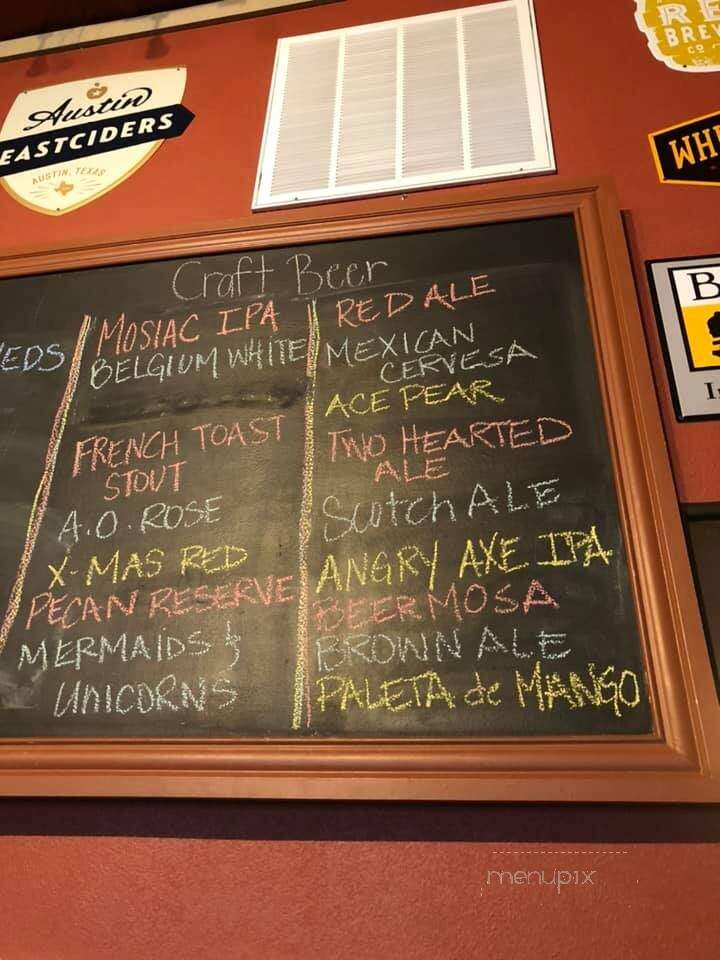 Austin
EASTCIDERS
AUSTIN, TEXAS
RE
BREW
CO
WH
B
I
Craft Beer
EDS
MOSIAC IPA
BELGIUM WHITE
FRENCH TOAST
STOUT
A.O. ROSE
X-MAS RED
PECAN RESERVE
MERMAIDS &
UNICORNS
RED ALE
MEXICAN
CERVESA
ACE PEAR
TWO HEARTED
ALE
Scotch ALE
ANGRY AXE IPA
BEERMOSA
BROWN ALE
PALETA de MANGO
menupix